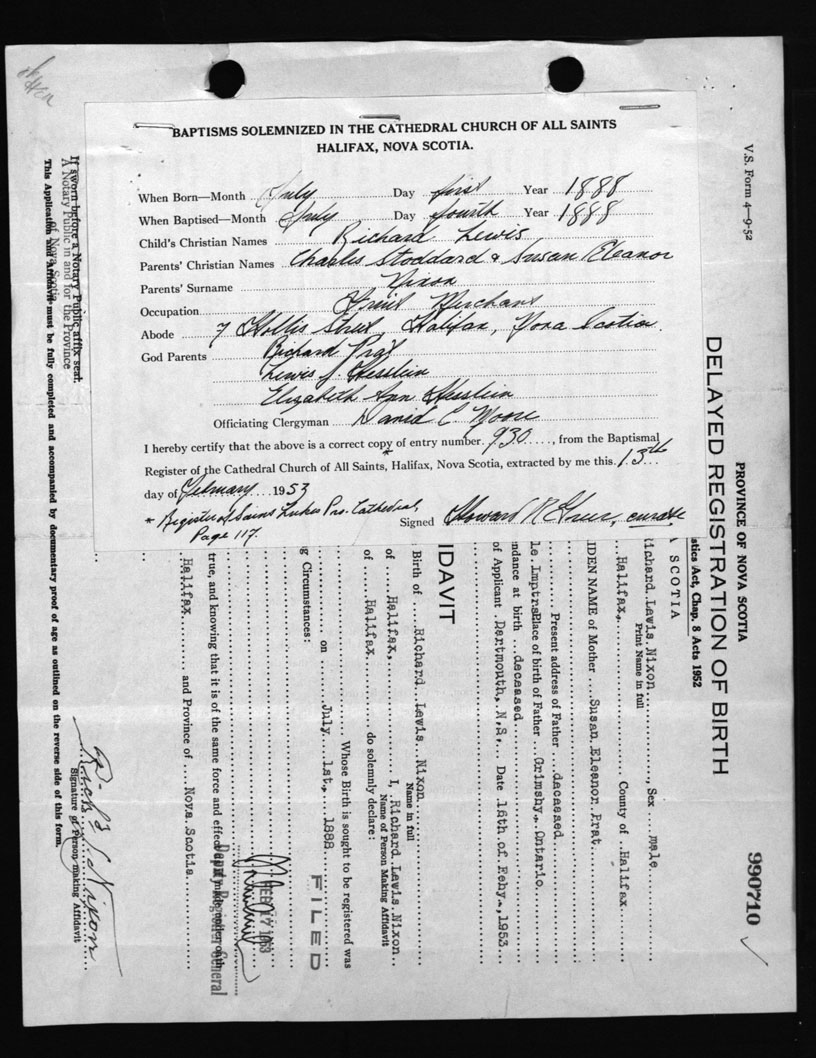 BAPTISMS SOLEMNIZED IN THE CATHEDRAL CHURCH OF ALL SAINTS
HALIFAX, NOVA SCOTIA.
When Born—Month July Day first Year 1888
When Baptised—Month July Day fourth Year 1888
Child's Christian Names Richard Lewis
Parents' Christian Names Charles Stoddard & Susan Eleanor
Parents' Surname Nixon
Occupation Fruit Merchant
Abode 7 Hollis Street, Halifax, Nova Scotia.
God Parents Richard Prat
Lewis J. Hesslein
Elizabeth Ann Hesslein
Officiating Clergyman David C Moore
I hereby certify that the above is a correct copy of entry number 930, from the Baptismal
Register of the Cathedral Church of All Saints,* Halifax, Nova Scotia, extracted by me this 13th
day of February 1953
* Register of Saint Lukes Pro. Cathedral,
Page 117.
Signed Howard R, curate
V.S. Form 4—9-52
PROVINCE OF NOVA SCOTIA
DELAYED REGISTRATION OF BIRTH
990710
stics Act, Chap. 8 Acts 1952
SCOTIA
ichard Lewis Nixon, Sex male
Print Name in full
Halifax, County of Halifax
IDEN NAME of Mother Susan Eleanor Prat
Present address of Father deceased
le Imptrs Place of birth of Father Grimsby, Ontario
ndance at birth deceased
of Applicant Dartmouth, N.S. Date 16th of Feby., 1953
IDAVIT
Birth of Richard Lewis Nixon
Name in full
of Halifax, I, Richard Lewis Nixon
Name of Person Making Affidavit
of Halifax do solemnly declare:
Whose Birth is sought to be registered was
on July 1st, 1888
g Circumstances:
FILED
FEB 17 1953
Deputy Registrar General
true, and knowing that it is of the same force and effect
Halifax and Province of Nova Scotia
Rich'd L Nixon
Signature of Person making Affidavit
If sworn before a Notary Public affix seal.
A Notary Public in and for the Province
of Nova Scotia
This Application and Affidavit must be fully completed and accompanied by documentary proof of age as outlined on the reverse side of this form.